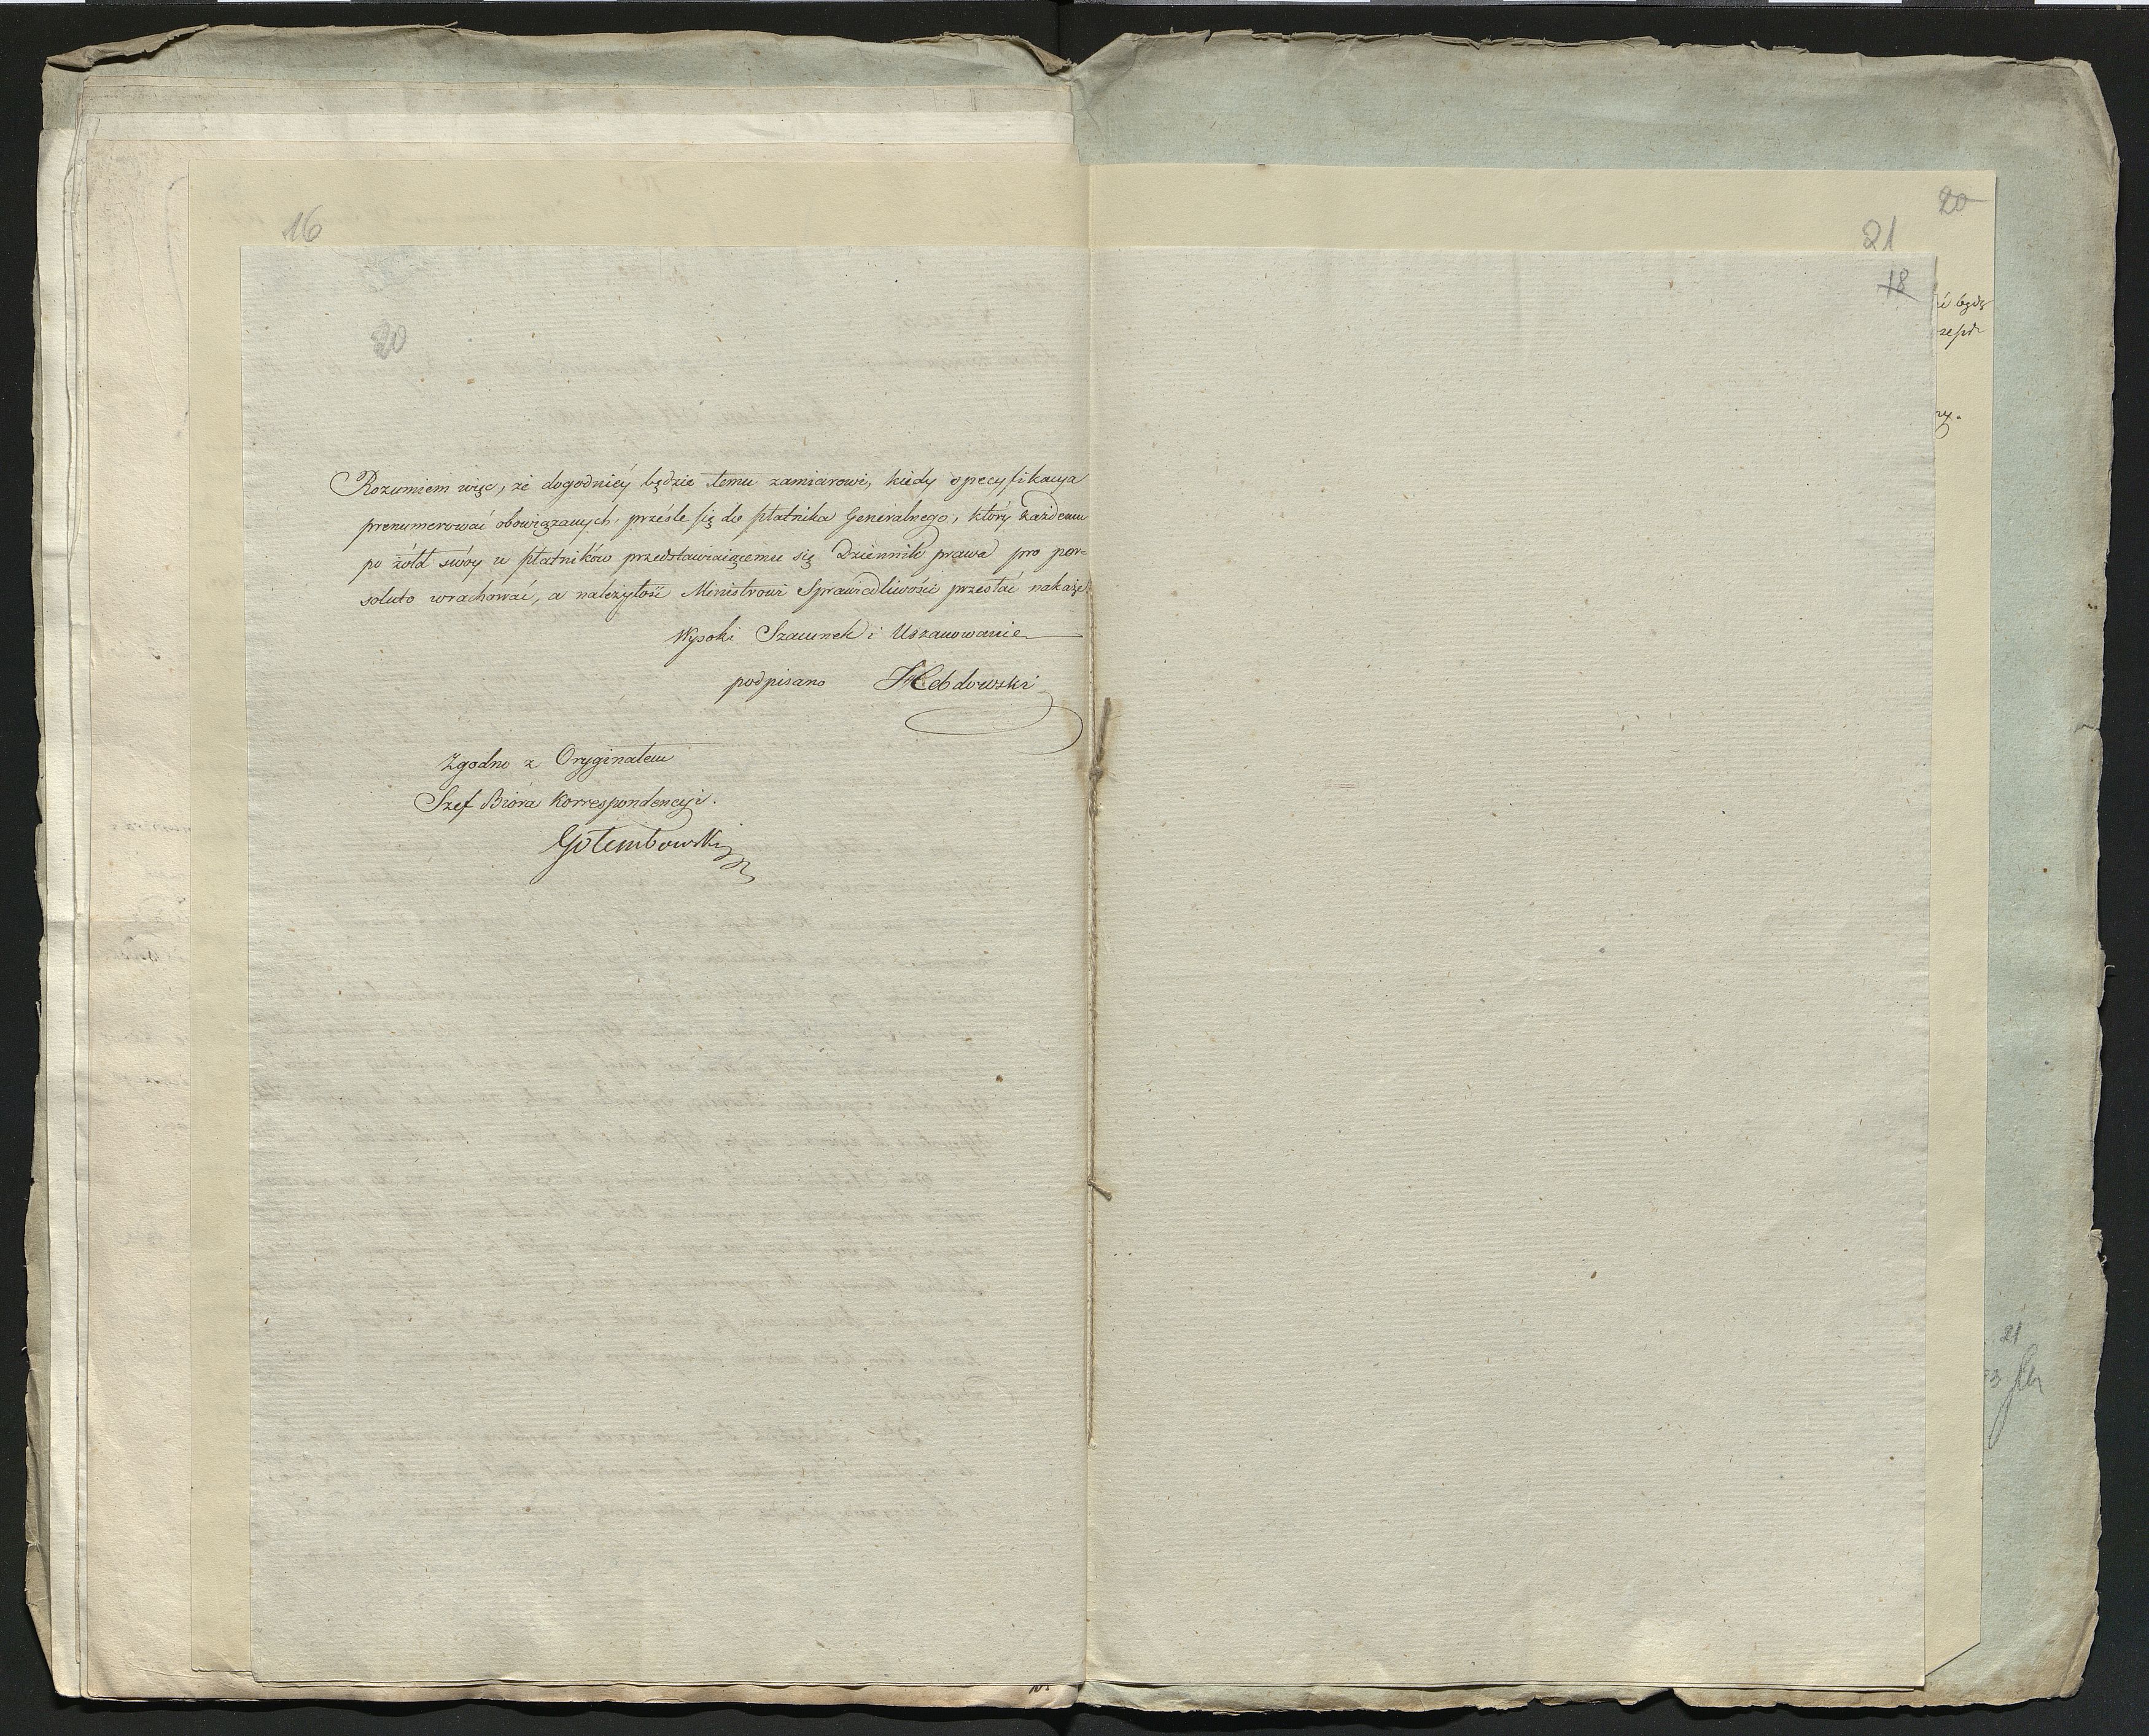 16
20
Rozumiem więc, że dogodniéy będzie temu zamiarowi, kiedy specyfikacya
prenumerować obowiązanych prześle się do płatnika Generalnego, który każdemu
po żołd swóy u płatników przedstawiaiącemu się Dziennik prawa pro per=
soluto wrachować, a należytość Ministrowi Sprawiedliwości przesłać nakaże.
Wysoki Szacunek i Uszanowanie
podpisano Hebdowski
Zgodno z Oryginałem
Szef Bióra Korrespondencyi.
Gołembowski
20
21
18
ć będę
rzy.
21